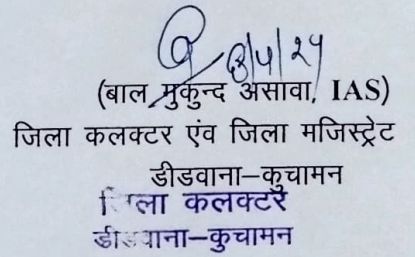 (बाल मुकुन्द असावा, IAS)
जिला कलक्टर एंव जिला मजिस्ट्रेट
डीडवाना–कुचामन
जिला कलक्टर
डीडवाना–कुचामन